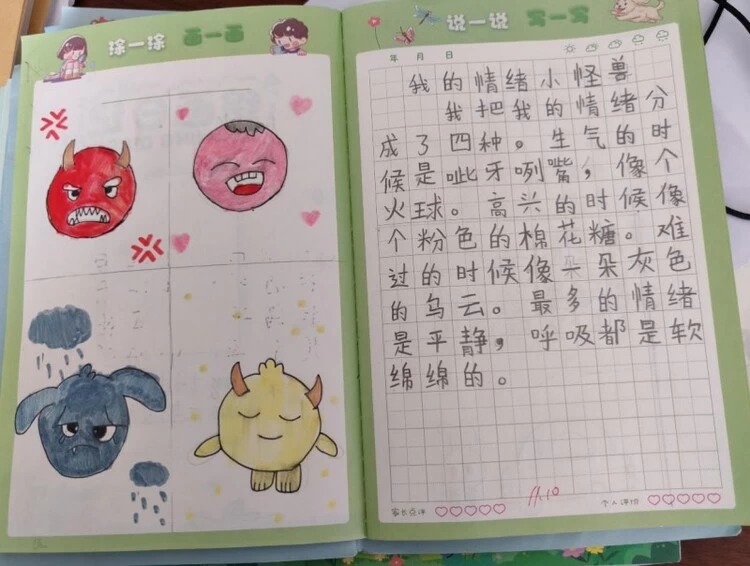 涂一涂 画一画
说一说 写一写
年 月 日
我的情绪小怪兽
我把我的情绪分
成了四种。生气的时
候是呲牙咧嘴，像个
火球。高兴的时候像
个粉色的棉花糖。难
过的时候像一朵灰色
的乌云。最多的情绪
是平静，呼吸都是软
绵绵的。
11.10
家长点评
个人评价